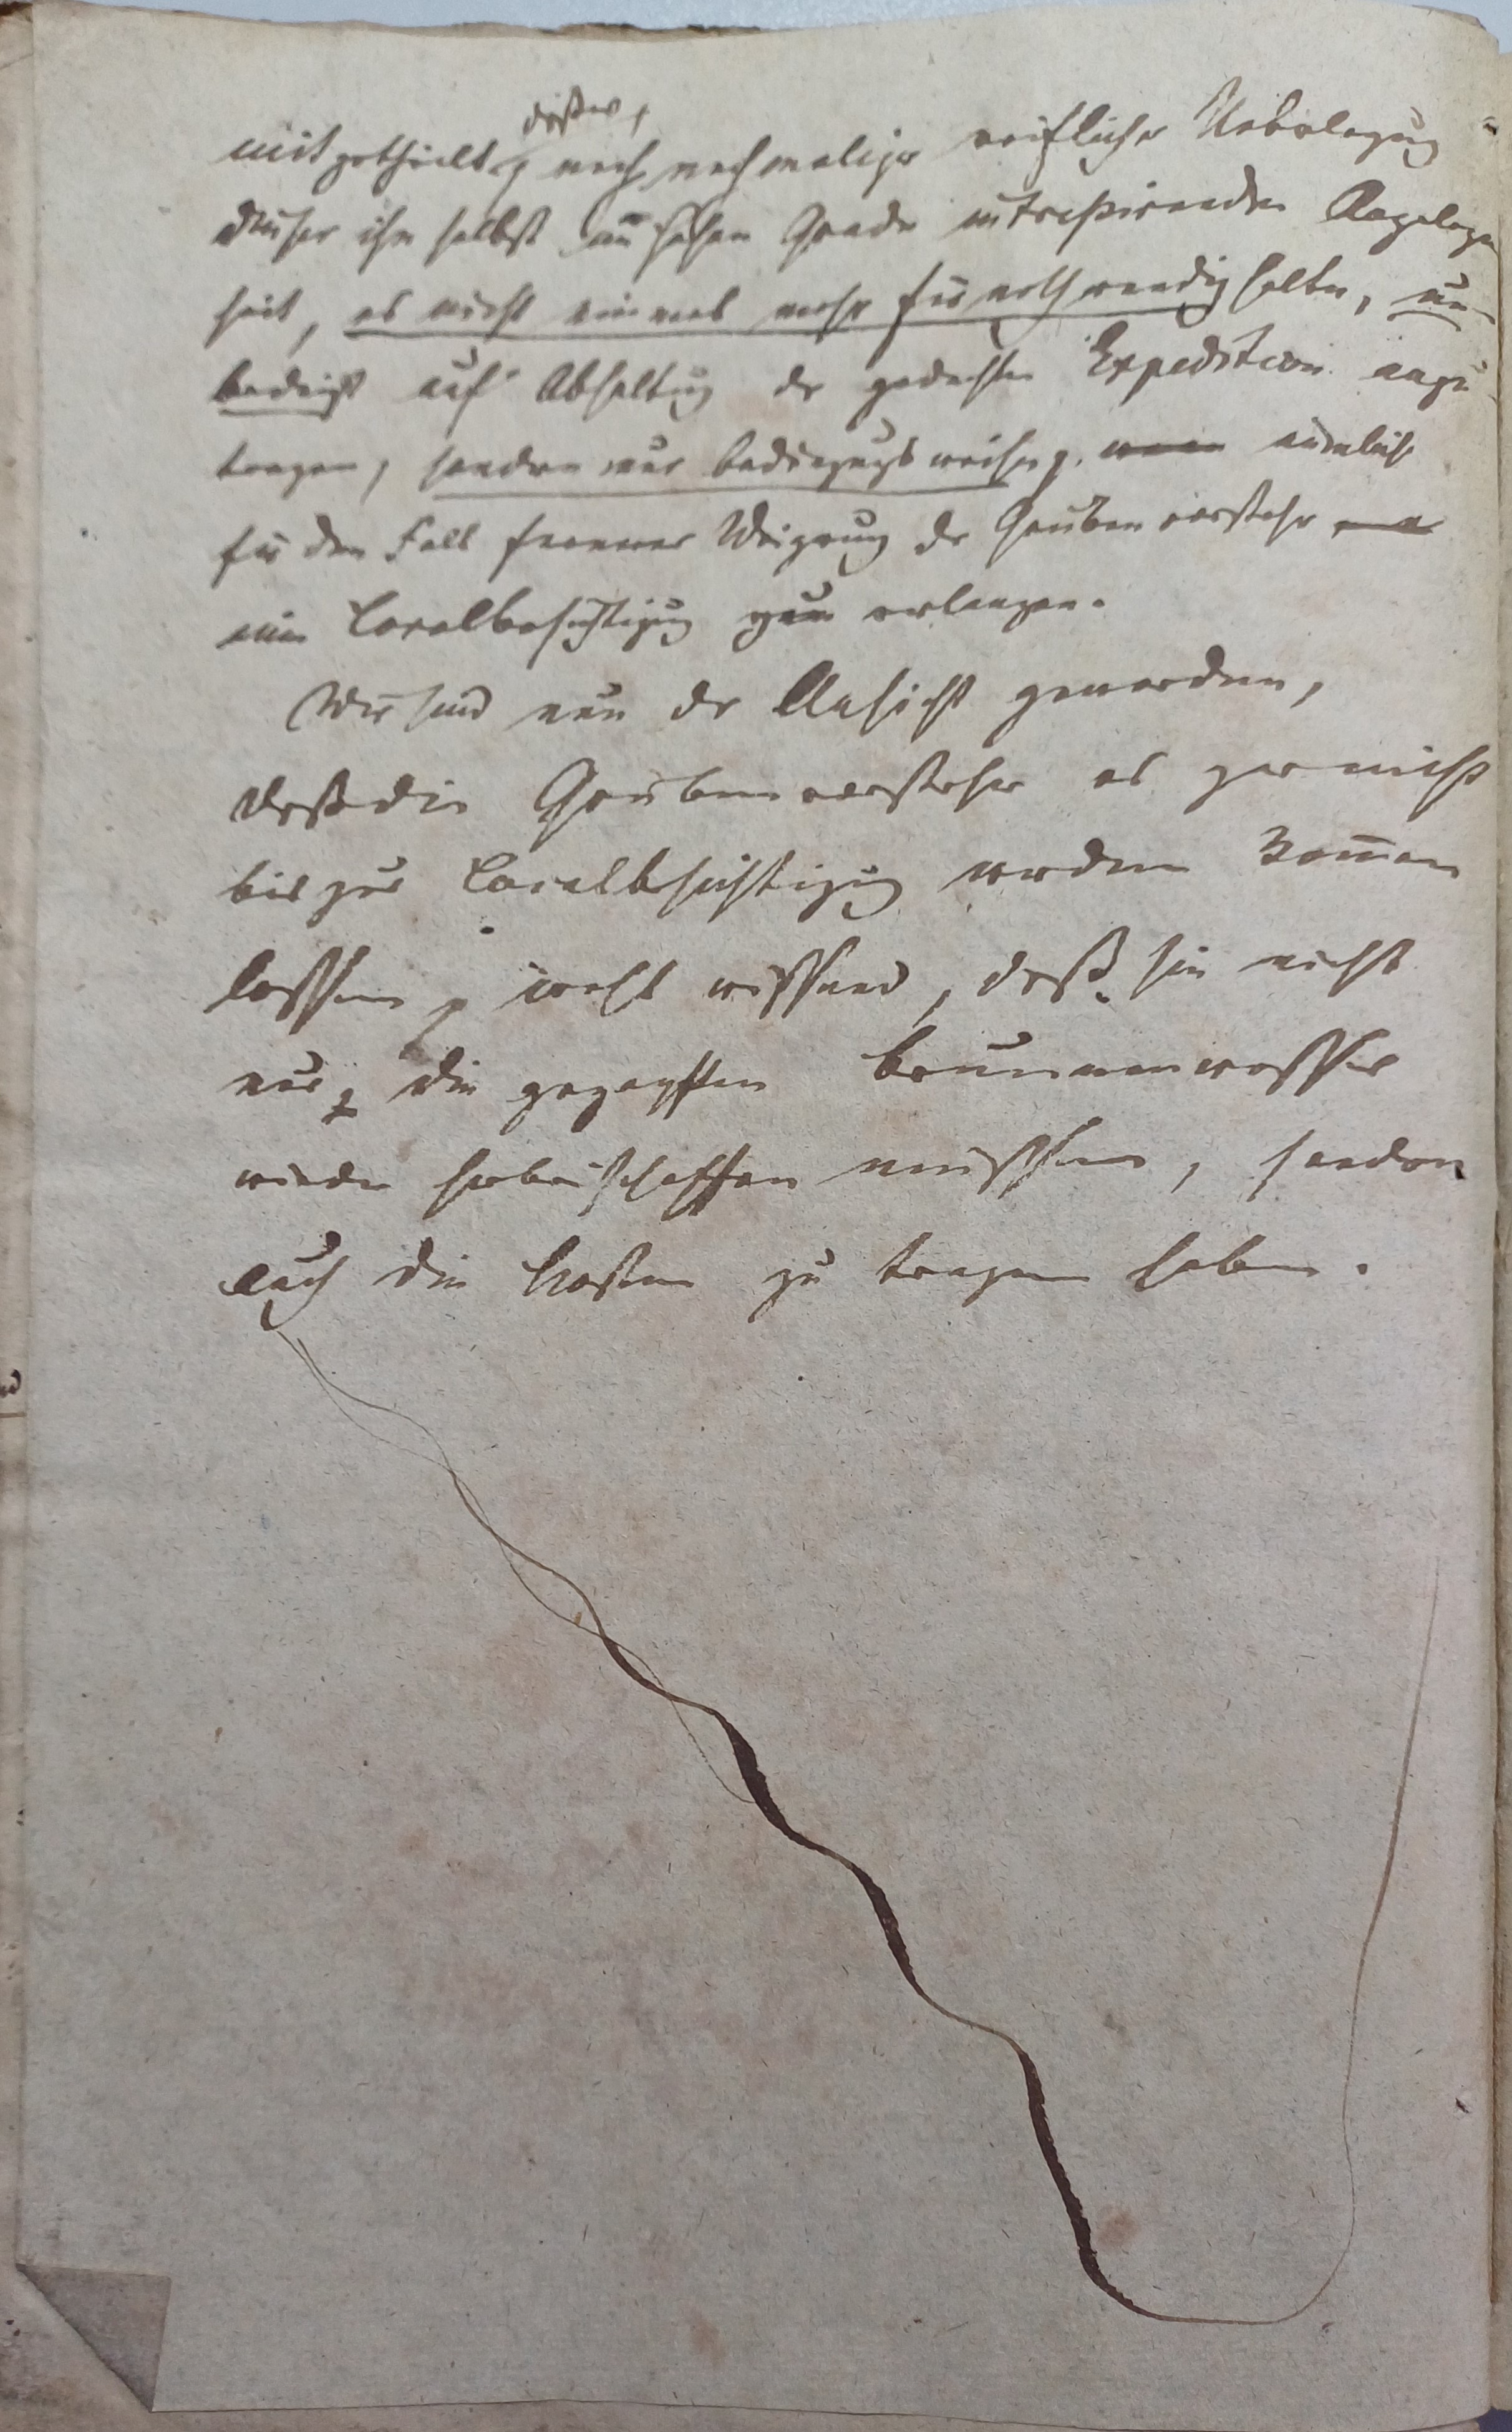 daßer,
mitgetheilt, nach nochmaliger reiflicher Ueberlegung
dieser ihn selbst im hohen Grade intreßirenden Angelegen
heit, es nicht einmal mehr für nothwendig halten, un-
bedingt auf Abhaltung der gedachten Expedition anzu
tragen, sondern nur bedingungsweise, wenn nämlich
für den Fall fernerer Weigerung der Grubenvorsteher
eine Localbesichtigung zu verlangen.
Wir sind nun der Ansicht geworden,
daß die Grubenvorsteher es gar nicht
bis zur Localbesichtigung werden kommen
lassen, wohl wissend, daß sie nicht
nur, die gezapften Brunnenwasser
wieder herbeischaffen müssen, sondern
auch die Kosten zu tragen haben.